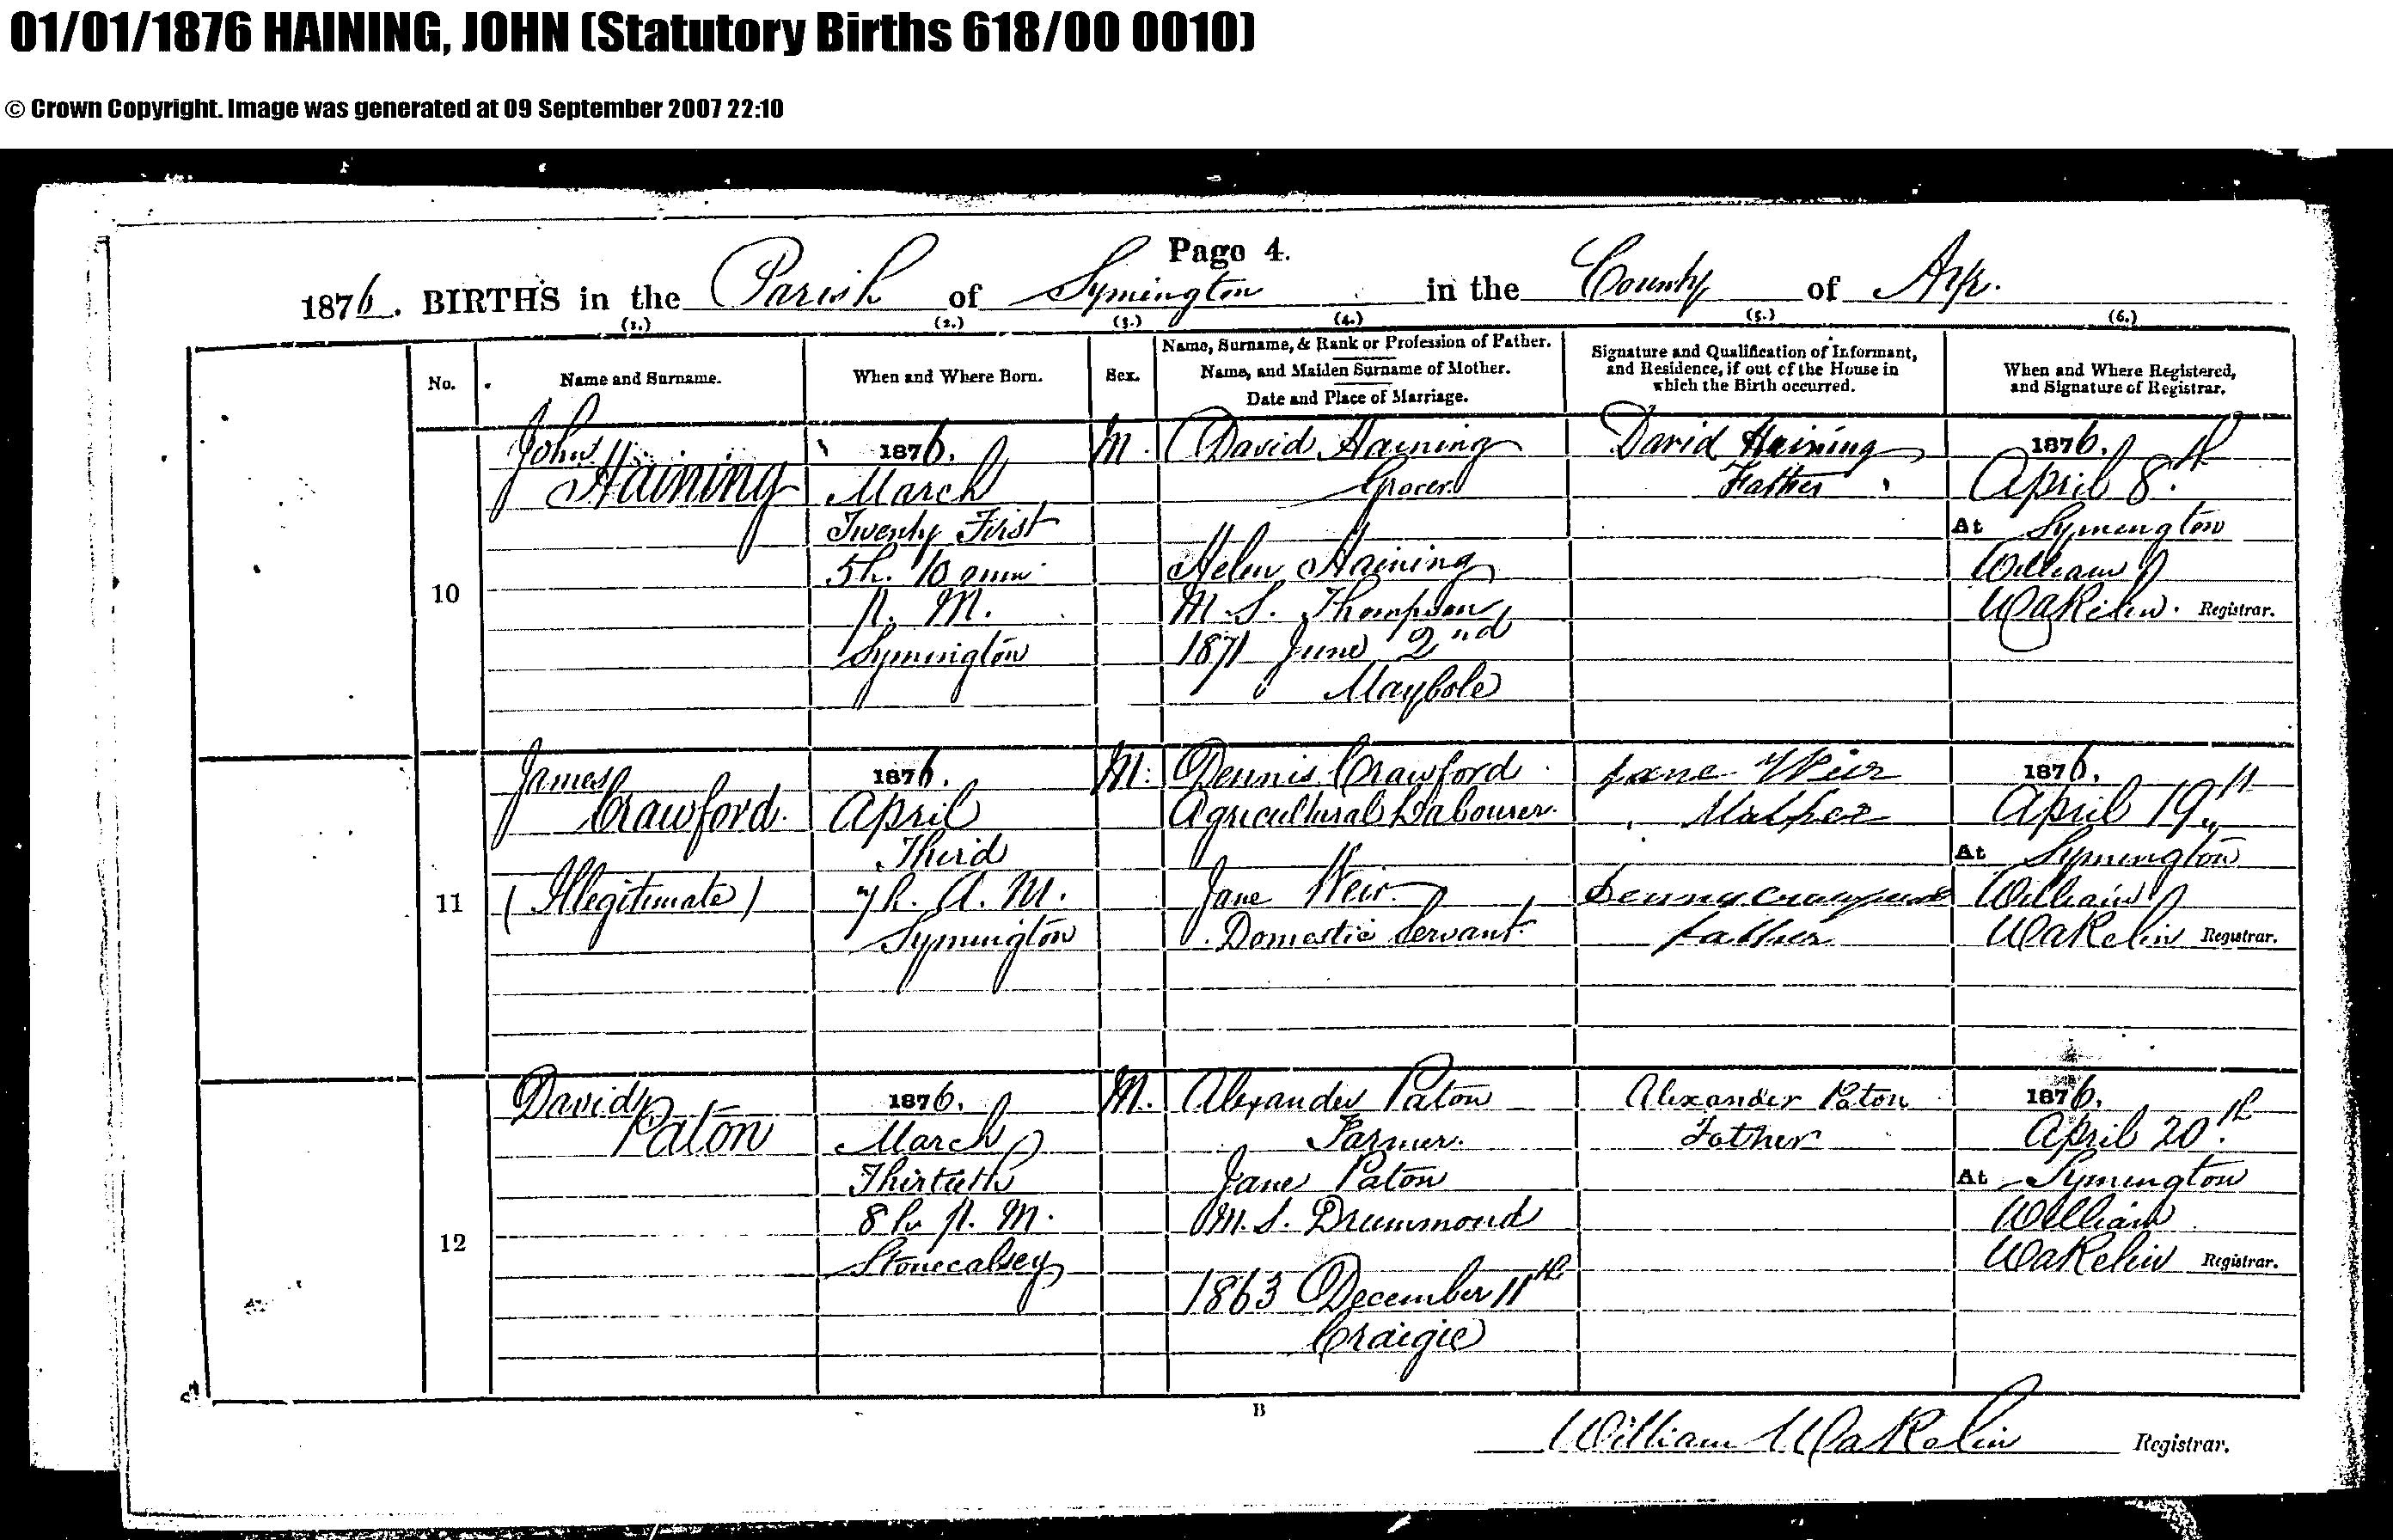 01/01/1876 HAINING, JOHN (Statutory Births 618/00 0010)
© Crown Copyright. Image was generated at 09 September 2007 22:10
Page 4.
1876. BIRTHS in the Parish of Symington in the County of Ayr.
(1.) (2.) (3.) (4.) (5.) (6.)
No. Name and Surname. When and Where Born. Sex. Name, Surname, & Rank or Profession of Father. Name, and Maiden Surname of Mother. Date and Place of Marriage. Signature and Qualification of Informant, and Residence, if out of the House in which the Birth occurred. When and Where Registered, and Signature of Registrar.
10
John
Haining
1876.
March
Twenty First
5h. 10 min
P. M.
Symington
M.
David Haining
Grocer
Helen Haining
M.S. Thompson
1871 June 2nd
Maybole
David Haining
Father
1876.
April 8th
At Symington
William
Wakelin. Registrar.
11
James
Crawford.
(Illegitimate)
1876.
April
Third
7h. A. M.
Symington
M.
Dennis Crawford
Agricultural Labourer.
Jane Weir
Domestic Servant
Jane Weir
Mother
Crawford
father
1876.
April 19th
At Symington
William
Wakelin Registrar.
12
David
Paton
1876.
March
Thirtieth
8h P. M.
Stonecalsey
M.
Alexander Paton
Farmer.
Jane Paton
M.S. Drummond
1863 December 11th
Craigie
Alexander Paton
Father
1876.
April 20th
At Symington
William
Wakelin Registrar.
B
William Wakelin Registrar.